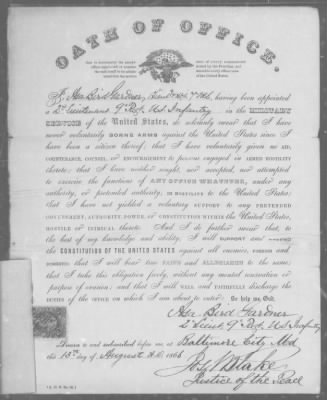 OATH OF OFFICE.
I, Asa Bird Gardner, having been appointed
a 2d Lieutenant 9th Regt. U.S. Infantry in the MILITARY
SERVICE of the United States, do solemnly swear that I have
never voluntarily BORNE ARMS against the United States since I
have been a citizen thereof; that I have voluntarily given NO AID,
COUNTENANCE, COUNSEL, or ENCOURAGEMENT to persons engaged in ARMED HOSTILITY
thereto; that I have neither sought, nor accepted, nor attempted
to exercise the functions of ANY OFFICE WHATEVER, under any
authority, or pretended authority, IN HOSTILITY to the United States;
that I have not yielded a voluntary SUPPORT to any PRETENDED
GOVERNMENT, AUTHORITY, POWER, or CONSTITUTION WITHIN the United States,
HOSTILE or INIMICAL thereto. And I do further swear that, to
the best of my knowledge and ability, I will SUPPORT AND DEFEND
the CONSTITUTION OF THE UNITED STATES against all enemies, FOREIGN AND
DOMESTIC; that I will bear TRUE FAITH AND ALLEGIANCE to the same;
that I take this obligation freely, without any mental reservation or
purpose of evasion; and that I will WELL AND FAITHFULLY DISCHARGE THE
DUTIES OF THE OFFICE on which I am about to enter: So help me, God.
Asa Bird Gardner
2d Lieut. 9th Regt. U.S. Infantry
Sworn to and subscribed before me, at Baltimore City, Md
this 15th day of August A.D. 1866
Jos. Blake
Justice of the Peace